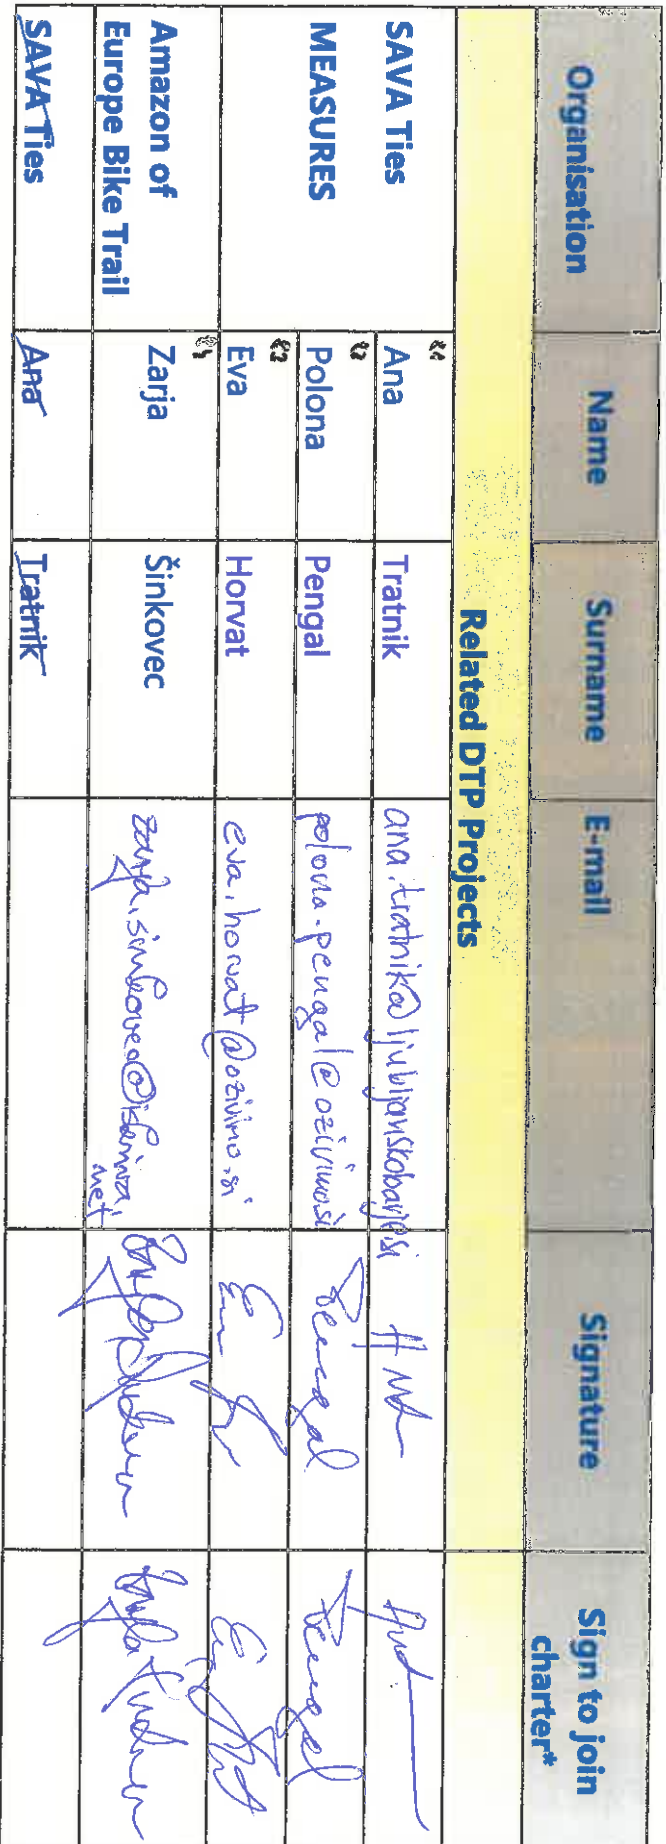 Organisation Name Surname E-mail Signature Sign to join charter*
Related DTP Projects
SAVA Ties Ana Tratnik ana.tratnik@ljubljanskobarje.si
MEASURES Polona Pengal polona.pengal@ozivimo.si Pengal Pengal
Eva Horvat eva.horvat@ozivimo.si
Amazon of Europe Bike Trail Zarja Šinkovec
SAVA Ties Ana Tratnik